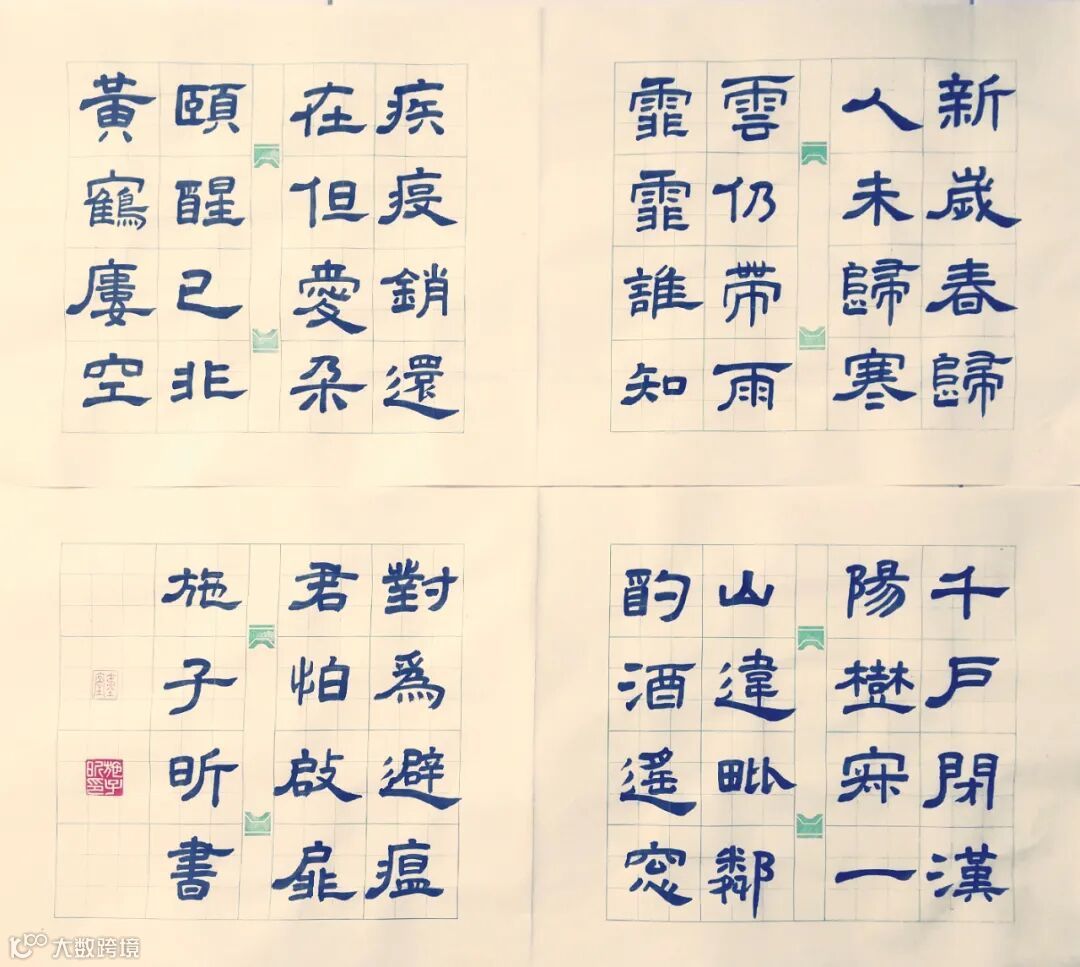 新歲春歸
人未歸寒
雲仍帶雨
霏霏誰知
疾疫銷還
在但愛朵
頤醒已非
黃鶴廔空
千戶閉漢
陽寂一
山違毗鄰
酌酒遙窓
對爲避瘟
君怕啟扉
施子昕書
施子昕印
大数跨境